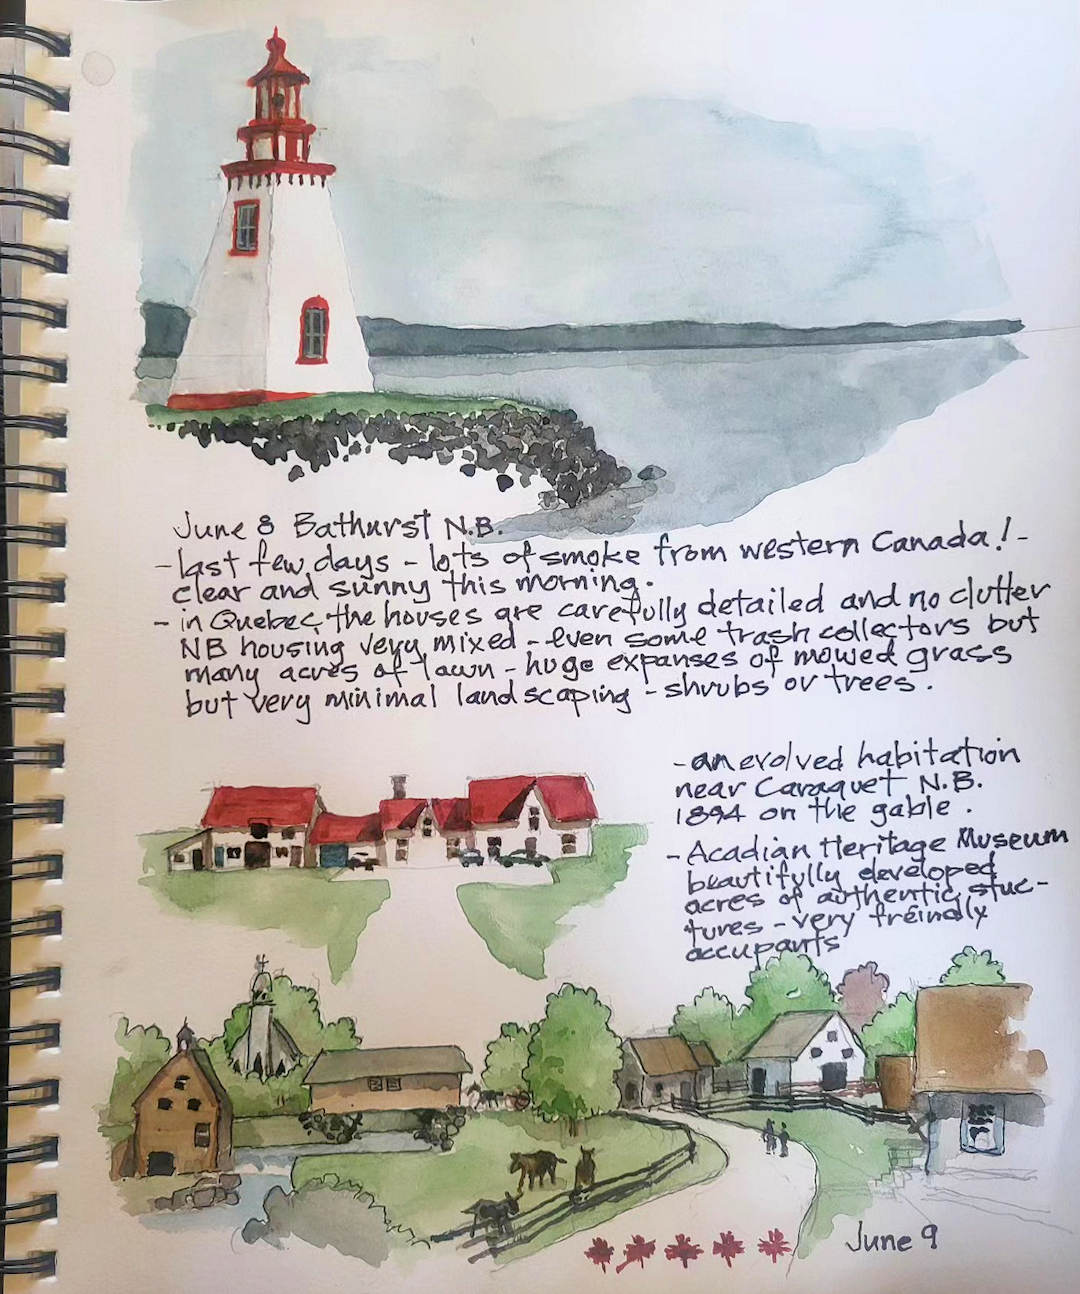 June 8 Bathurst N.B.
- last few days - lots of smoke from western Canada! -
clear and sunny this morning.
- in Quebec, the houses are carefully detailed and no clutter
NB housing very mixed - even some trash collectors but
many acres of lawn - huge expanses of mowed grass
but very minimal landscaping - shrubs or trees.
- an evolved habitation
near Caraquet N.B.
1894 on the gable.
- Acadian Heritage Museum
beautifully developed
acres of authentic stuc-
tures - very freindly
occupants
June 9